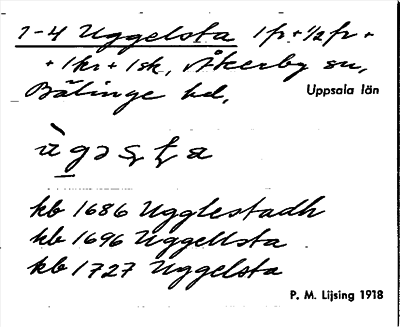 1-4 Uggelsta 1 fr + 1/2 fr +
+ 1 kr + 1 sk, Åkerby sn,
Bälinge hd,
Uppsala län
kb 1686 Ugglestadh
kb 1696 Uggellsta
kb 1727 Uggelsta
P. M. Lijsing 1918